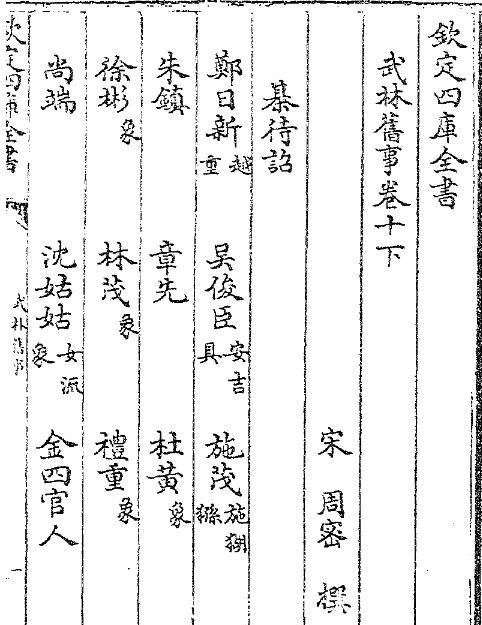 欽定四庫全書
武林舊事卷十下
宋 周密 撰
棊待詔
鄭日新 越童 吳俊臣 安吉具 施茂 施猢猻
朱鎮 章先 杜黃 象
徐彬 象 林茂 象 禮重 象
尚端 沈姑姑 女流象 金四官人
欽定四庫全書 武林舊事 一